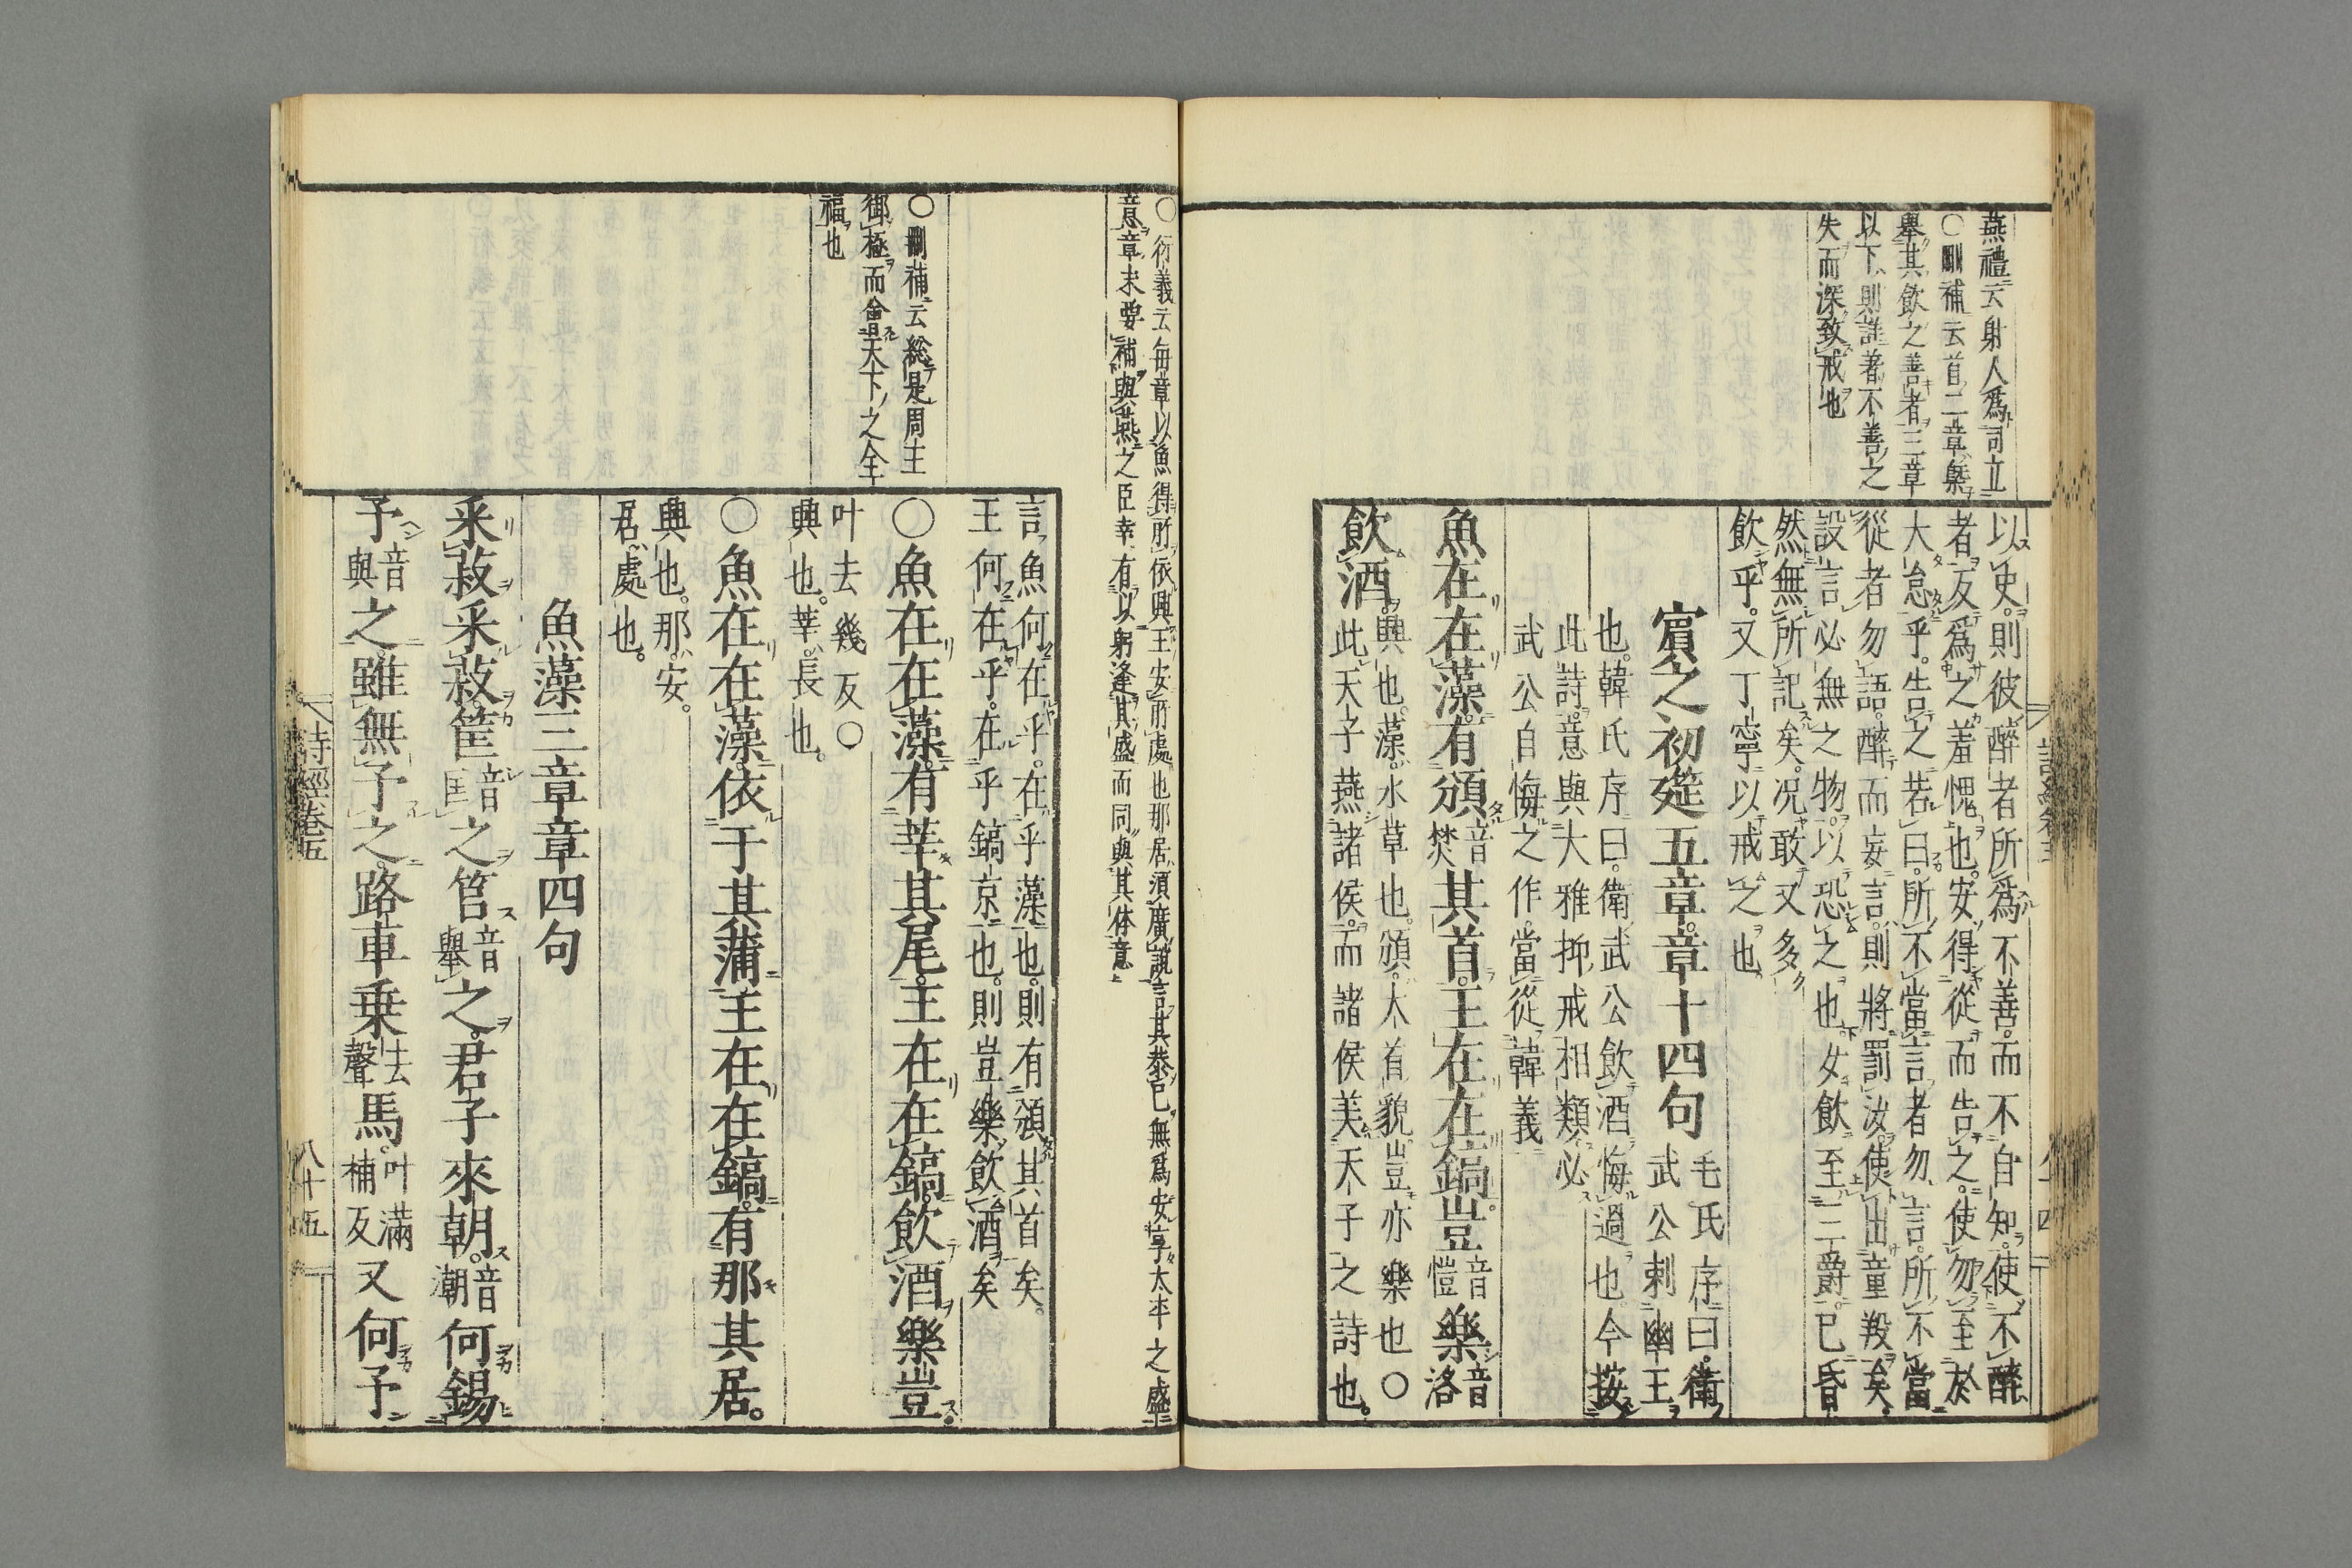 燕禮云射人爲司立
〇刪補云首二章槩
舉其飲之善者三章
以下則誰著不善之
失而深致戒也
以史則彼醉者所爲不善而不自知使不醉
者反爲之羞愧也安得從而告之使勿至於
大怠乎告之若曰所不當言者勿言所不當
從者勿語醉而妄言則將罰汝使出童羖矣
設言必無之物以恐之也女飲至三爵已昏
然無所記矣况敢又多
飲乎又丁寧以戒之也
賓之初筵五章章十四句
毛氏序曰衛
武公刺幽王
也韓氏序曰衛武公飲酒悔過也今按
此詩意與大雅抑戒相類必
武公自悔之作當從韓義
魚在在藻有頒音焚其首王在在鎬豈音愷樂音洛
飲酒
興也藻水草也頒大首貌豈亦樂也〇
此天子燕諸侯而諸侯美天子之詩也
〇衍義云毎章以魚得所依興王安所處也那居須廣說言其恭已無爲安享太平之盛
意章末要補與燕之臣幸有以躬逢其盛而同與其体意
言魚何在乎在乎藻也則有頒其首矣
王何在乎在乎鎬京也則豈樂飲酒矣
〇刪補云総是周王
御極而會天下之全
福也
〇魚在在藻有莘其尾王在在鎬飲酒樂豈
叶去幾反〇
興也莘長也
〇魚在在藻依于其蒲王在在鎬有那其居
興也那安
居處也
魚藻三章章四句
采菽采菽筐音匡之筥音舉之君子來朝音潮何錫
予音與之雖無予之路車乗去聲馬叶滿補反又何予
詩經卷五
八十五